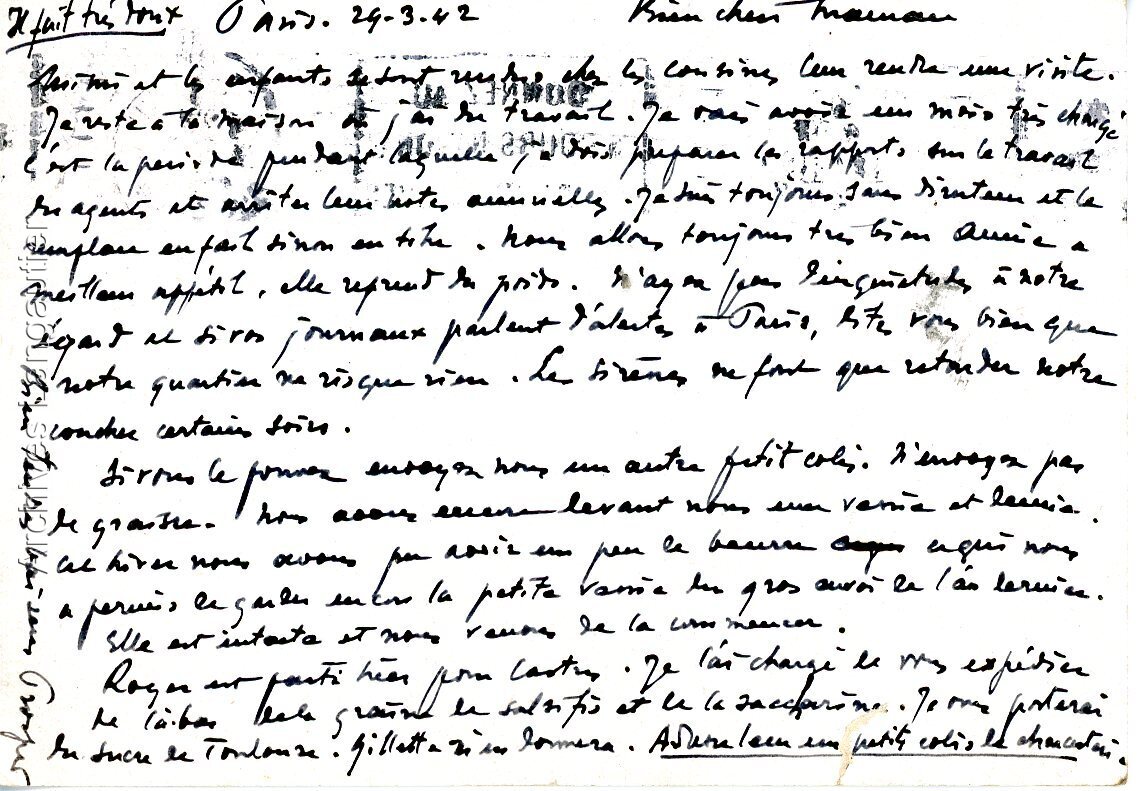 Il fait très doux Paris. 29-3-42 Bien chère Maman
Mimi et les enfants se sont rendus chez les cousines leur rendre une visite.
Je reste à la maison où j'ai du travail. Je vais avoir un mois très chargé
C'est la période pendant laquelle je dois préparer les rapports sur le travail
des agents et arrêter leurs notes annuelles. Je suis toujours sans directeur et le
remplace en fait sinon en titre. Nous allons toujours très bien Annie a
meilleur appétit, elle reprend du poids. N'ayez pas d'inquiétudes à notre
égard et si vos journaux parlent d'alertes à Paris, dites vous bien que
notre quartier ne risque rien. Les sirènes ne font que retarder notre
coucher certains soirs.
Si vous le pouvez envoyez nous un autre petit colis. N'envoyez pas
de graisse. Nous avons encore devant nous une vessie et demie.
Cet hiver nous avons pu avoir un peu de beurre ce qui nous
a permis de garder encore la petite vessie du gros envoi de l'an dernier.
Elle est intacte et nous venons de la commencer.
Roger est parti hier pour Castres. Je l'ai chargé de vous expédier
de là-bas de la graine de salsifis et de la saccharine. Je vous porterai
du sucre de Toulouse. Gillette m'en donnera. Adresse leur un petit colis de charcuterie.
Prosper
archives.tarnetgaillen